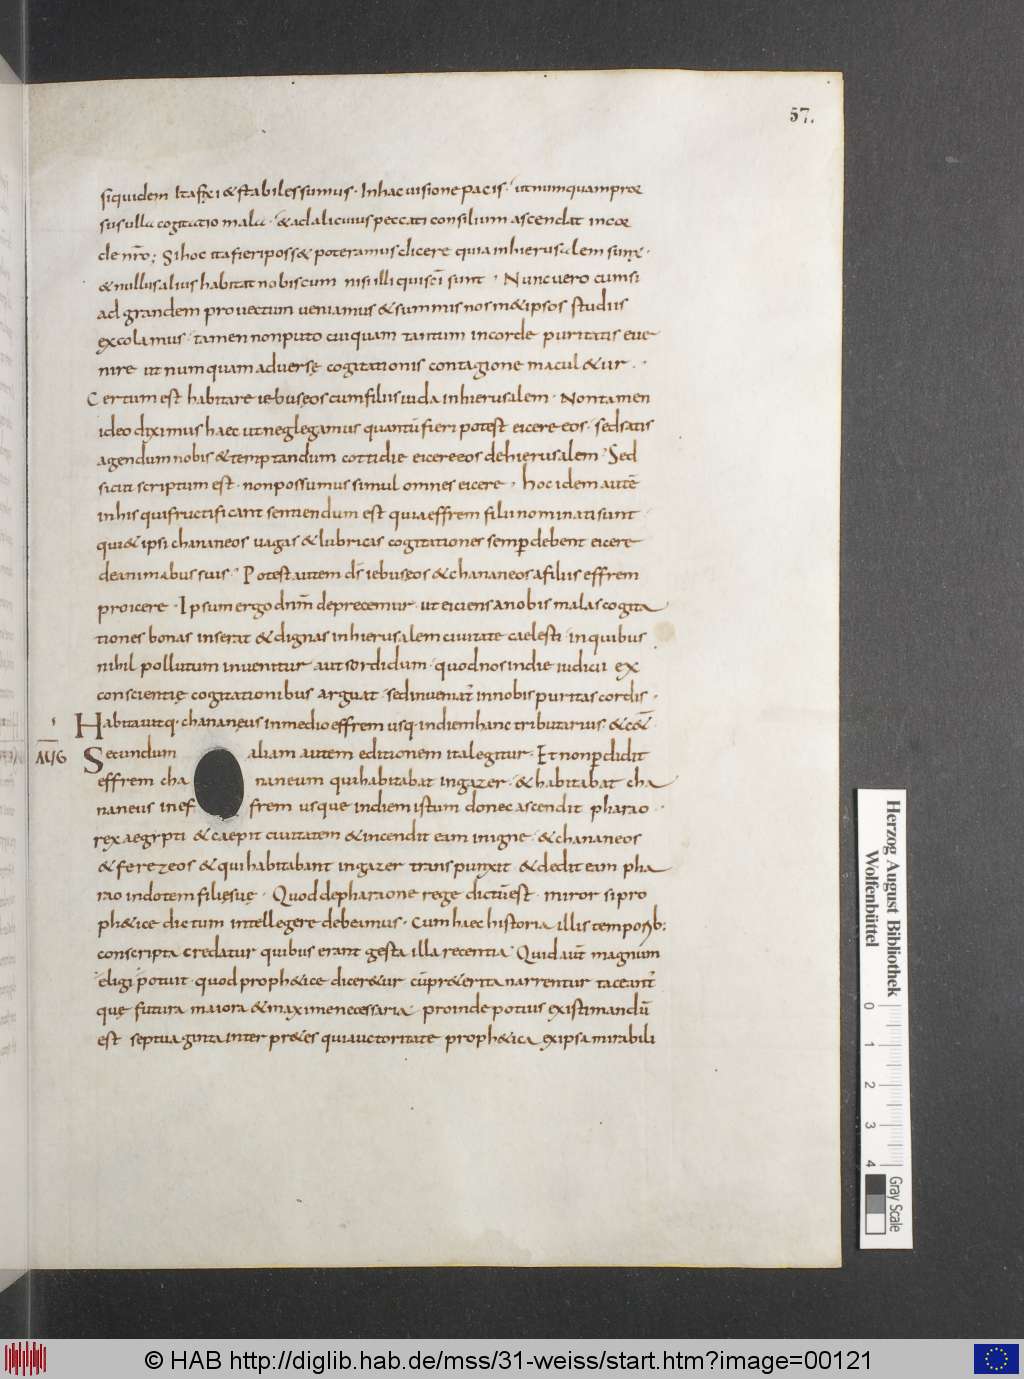 57.
siquidem Itafixi & stabiles sumus · Inhac uisione pacis · ut numquam pror
sus ulla cogitatio mala · & ad alicuius peccati consilium ascendat incor
de nr̄o; Si hoc ita fieri poss& poteramus dicere quia inhierusalem sum; ·
& nullus alius habitat nobiscum nisi illi qui sc̄i sunt · Nunc uero cum si
ad grandem prouectum ueniamus & summis nos m&ipsos studiis
excolamus · tamen non puto cuiquam tantum incorde puritatis eue
nire ut numquam aduersę cogitationis contagione macul&ur · ·
Certum est habitare iebusęos cum filiis iuda inhierusalem · Non tamen
ideo diximus haec ut neglegamus quantū fieri potest eicere eos · sed satis
agendum nobis & temptandum cottidie eicere eos de hierusalem · Sed
sicut scriptum est · non possumus simul omnes eicere · hoc idem autē
in his qui fructificant sentiendum est quia effrem filii nominati sunt
qui & ipsi chananeos uagas & lubricas cogitationes semp debent eicere
de animabus suis · Potest autem ds̄ iebusęos & chananeos a filiis effrem
proicere · Ipsum ergo dnm̄ deprecemur · ut eiciens a nobis malas cogita
tiones bonas inserat & dignas in hierusalem ciuitate caelesti · in quibus
nihil pollutum inuenitur aut sordidum · quod nos in die iudicii ex
conscientię cogitationibus arguat · sed inueniat᷑ in nobis puritas cordis ·
Habitauitq· chananęus in medio effrem usq· in diem hanc tributarius · &c&
AUG
Secundum aliam autem editionem ita legitur · Et non pdidit
effrem cha naneum qui habitabat in gazer · & habitabat cha
naneus in ef frem usque in diem istum donec ascendit pharao · ·
rex aegypti & caepit ciuitatem & incendit eam in igne · & chananeos
& ferezeos & qui habitabant in gazer transpunxit · & dedit eam pha
rao in dotem filięsuę · Quod de pharaone rege dictū est · miror si pro
ph&ice dictum intellegere debeamus · Cum haec historia illis temporib:
conscripta credatur quibus erant gesta illa recentia · Quid aut̄ magnum
eligi potuit · quod proph&ice dicer&ur cū pr&erita narrentur taceant᷑
quę futura maiora & maxime necessaria · proinde potius existimandū
est septuaginta interpr&es qui auctoritate proph&ica ex ipsa mirabili
Herzog August Bibliothek
Wolfenbüttel
0
1
2
3
4
Gray Scale
© HAB http://diglib.hab.de/mss/31-weiss/start.htm?image=00121